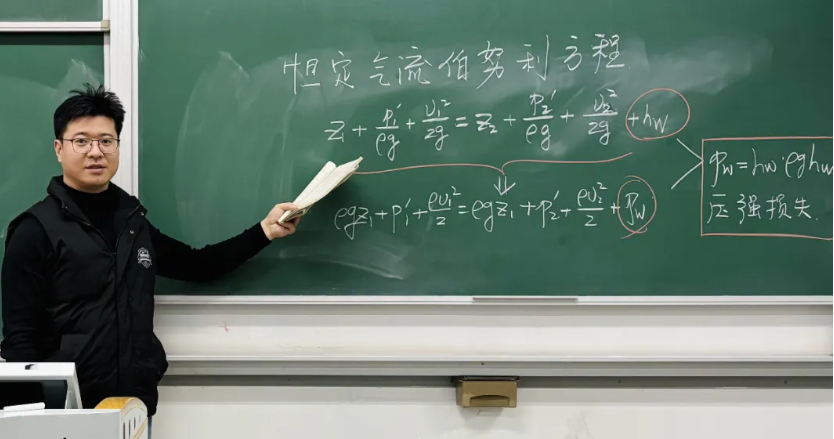 恒定气流伯努利方程
z₁ + p₁′/ρg + υ₁²/2g = z₂ + p₂′/ρg + υ₂²/2g + hw
ρgz₁ + p₁′ + ρυ₁²/2 = ρgz₁ + p₂′ + ρυ₂²/2 + pw
pw = hw·ρghw
压强损失.